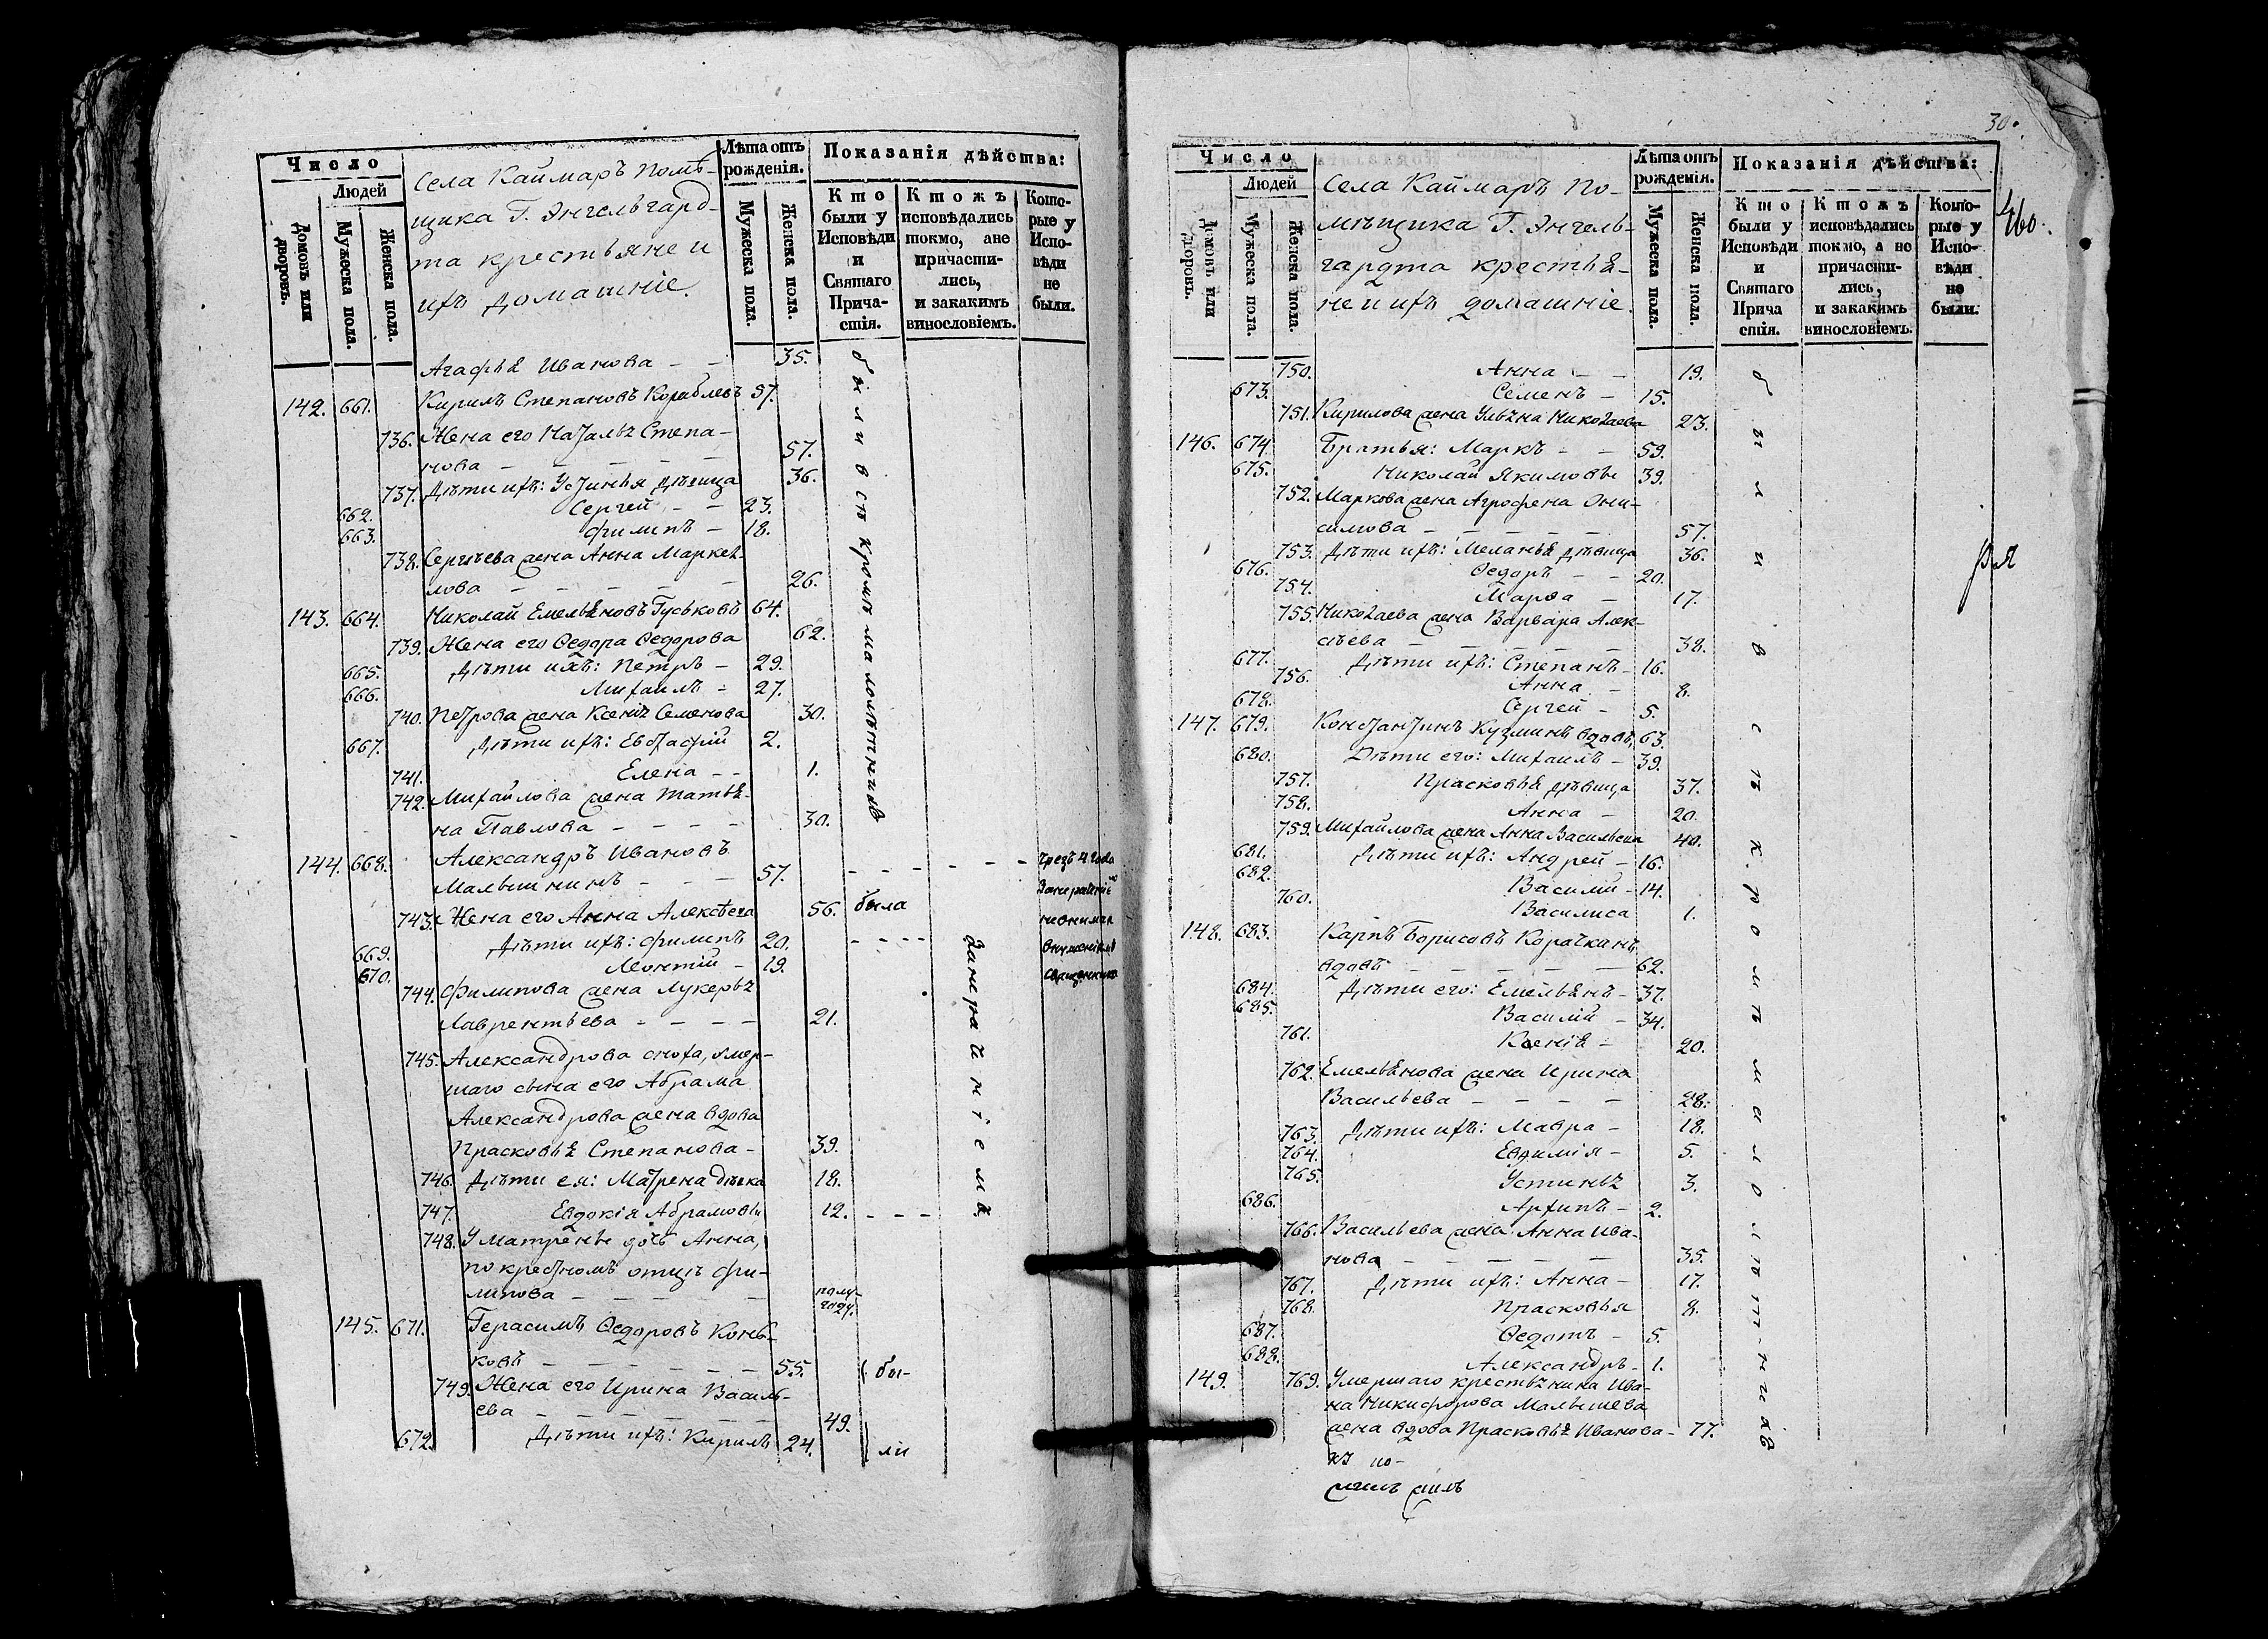 Число
Людей
Домовъ или дворовъ.
Мужеска пола.
Женска пола.
Села Каймаръ Помѣ-
щика Г. Энгельгард-
та крестьяне и
ихъ домашніе.
Лѣта отъ
рожденія.
Мужеска пола.
Женска пола.
Показанія дѣйства:
Кто
были у
Исповѣди
и
Святаго
Прича-
стія.
Ктожъ
исповѣдались
токмо, а не
причасти-
лись,
и закакимъ
винословіемъ.
Кото-
рые у
Испо-
вѣди
не
были.
Агафья Иванова - - 35.
142. 661. Кирилъ Степановъ Кораблевъ 57.
736. Жена его Наталья Степа-
нова - - - - - 57.
737. Дѣти ихъ: Устинья дѣвица 36.
662. Сергей - - 23.
663. Филипъ - 18.
738. Сергѣева жена Анна Маркел-
лова - - - - - 26.
143. 664. Николай Емельяновъ Гуськовъ 64.
739. Жена его Ѳедора Ѳедорова 62.
665. Дѣти ихъ: Петръ - 29.
666. Михаилъ - 27.
740. Петрова жена Ксенія Семенова 30.
667. Дѣти ихъ: Евстафій 2.
741. Елена - - 1.
742. Михайлова жена Татья-
на Павлова - - - - 30.
были всѣ кромѣ малолѣтнихъ
144. 668. Александръ Ивановъ
Малышкинъ - - - 57.
743. Жена его Анна Алексѣева 56. была
669. Дѣти ихъ: Филипъ 20.
670. Леонтій - 19.
744. Филипова жена Лукерья
Лаврентьева - - - - 21.
745. Александрова сноха, умер-
шаго сына его Абрама
Александрова жена вдова
Прасковья Степанова - 39.
746. Дѣти ея: Матрена дѣвка 18.
747. Евдокія Абрамовы 12. - - -
748. У Матрены дочь Анна,
по крестномъ отцѣ Фи-
липова - - - - - полу-
году.
чрезъ 4 года
священника
145. 671. Герасимъ Ѳедоровъ Конь-
ковъ - - - - - - 55. бы-
749. Жена его Ирина Василь-
ева - - - - - - 49.
672. Дѣти ихъ: Кирилъ 24. ли
30.
460.
Число
Людей
Домовъ или дворовъ.
Мужеска пола.
Женска пола.
Села Каймаръ По-
мѣщика Г. Энгель-
гардта крестья-
не и ихъ домашніе.
Лѣта отъ
рожденія.
Мужеска пола.
Женска пола.
Показанія дѣйства:
Кто
были у
Исповѣди
и
Святаго
Прича
стія.
Ктожъ
исповѣдались
токмо, а не
причасти-
лись,
и закакимъ
винословіемъ.
Кото-
рые у
Испо-
вѣди
не
были.
750. Анна - - 19.
673. Семенъ - 15.
751. Кирилова жена Ульяна Николаева 23.
146. 674. Братья: Маркъ - - 59.
675. Николай Якимовы 39.
752. Маркова жена Агрофена Они-
симова - - - - - 57.
753. Дѣти ихъ: Меланья дѣвица 36.
676. Ѳедоръ - - 20.
754. Марѳа - 17.
755. Николаева жена Варвара Алек-
сѣева - - - - - 38.
677. Дѣти ихъ: Степанъ - 16.
756. Анна - 8.
678. Сергей - 5.
147. 679. Константинъ Кузминъ вдовъ, 63.
680. Дѣти его: Михаилъ - 39.
757. Прасковья дѣвица 37.
758. Анна - 20.
759. Михайлова жена Анна Васильева 40.
681. Дѣти ихъ: Андрей - 16.
682. Василій - 14.
760. Василиса 1.
148. 683. Карпъ Борисовъ Корачкинъ
вдовъ - - - - - 62.
684. Дѣти его: Емельянъ - 37.
685. Василій - 34.
761. Ксенія - 20.
762. Емельянова жена Ирина
Васильева - - - - 28.
763. Дѣти ихъ: Мавра - 18.
764. Евдимія - 5.
765. Устинья 3.
686. Архипъ - 2.
766. Васильева жена Анна Ива-
нова - - - - - 35.
767. Дѣти ихъ: Анна - 17.
768. Прасковья 8.
687. Ѳедотъ - 5.
688. Александръ - 1.
149. 769. Умершаго крестьянина Ива-
на Никифорова Малышева
жена вдова Прасковья Иванова - 77.
были всѣ кромѣ малолѣтнихъ